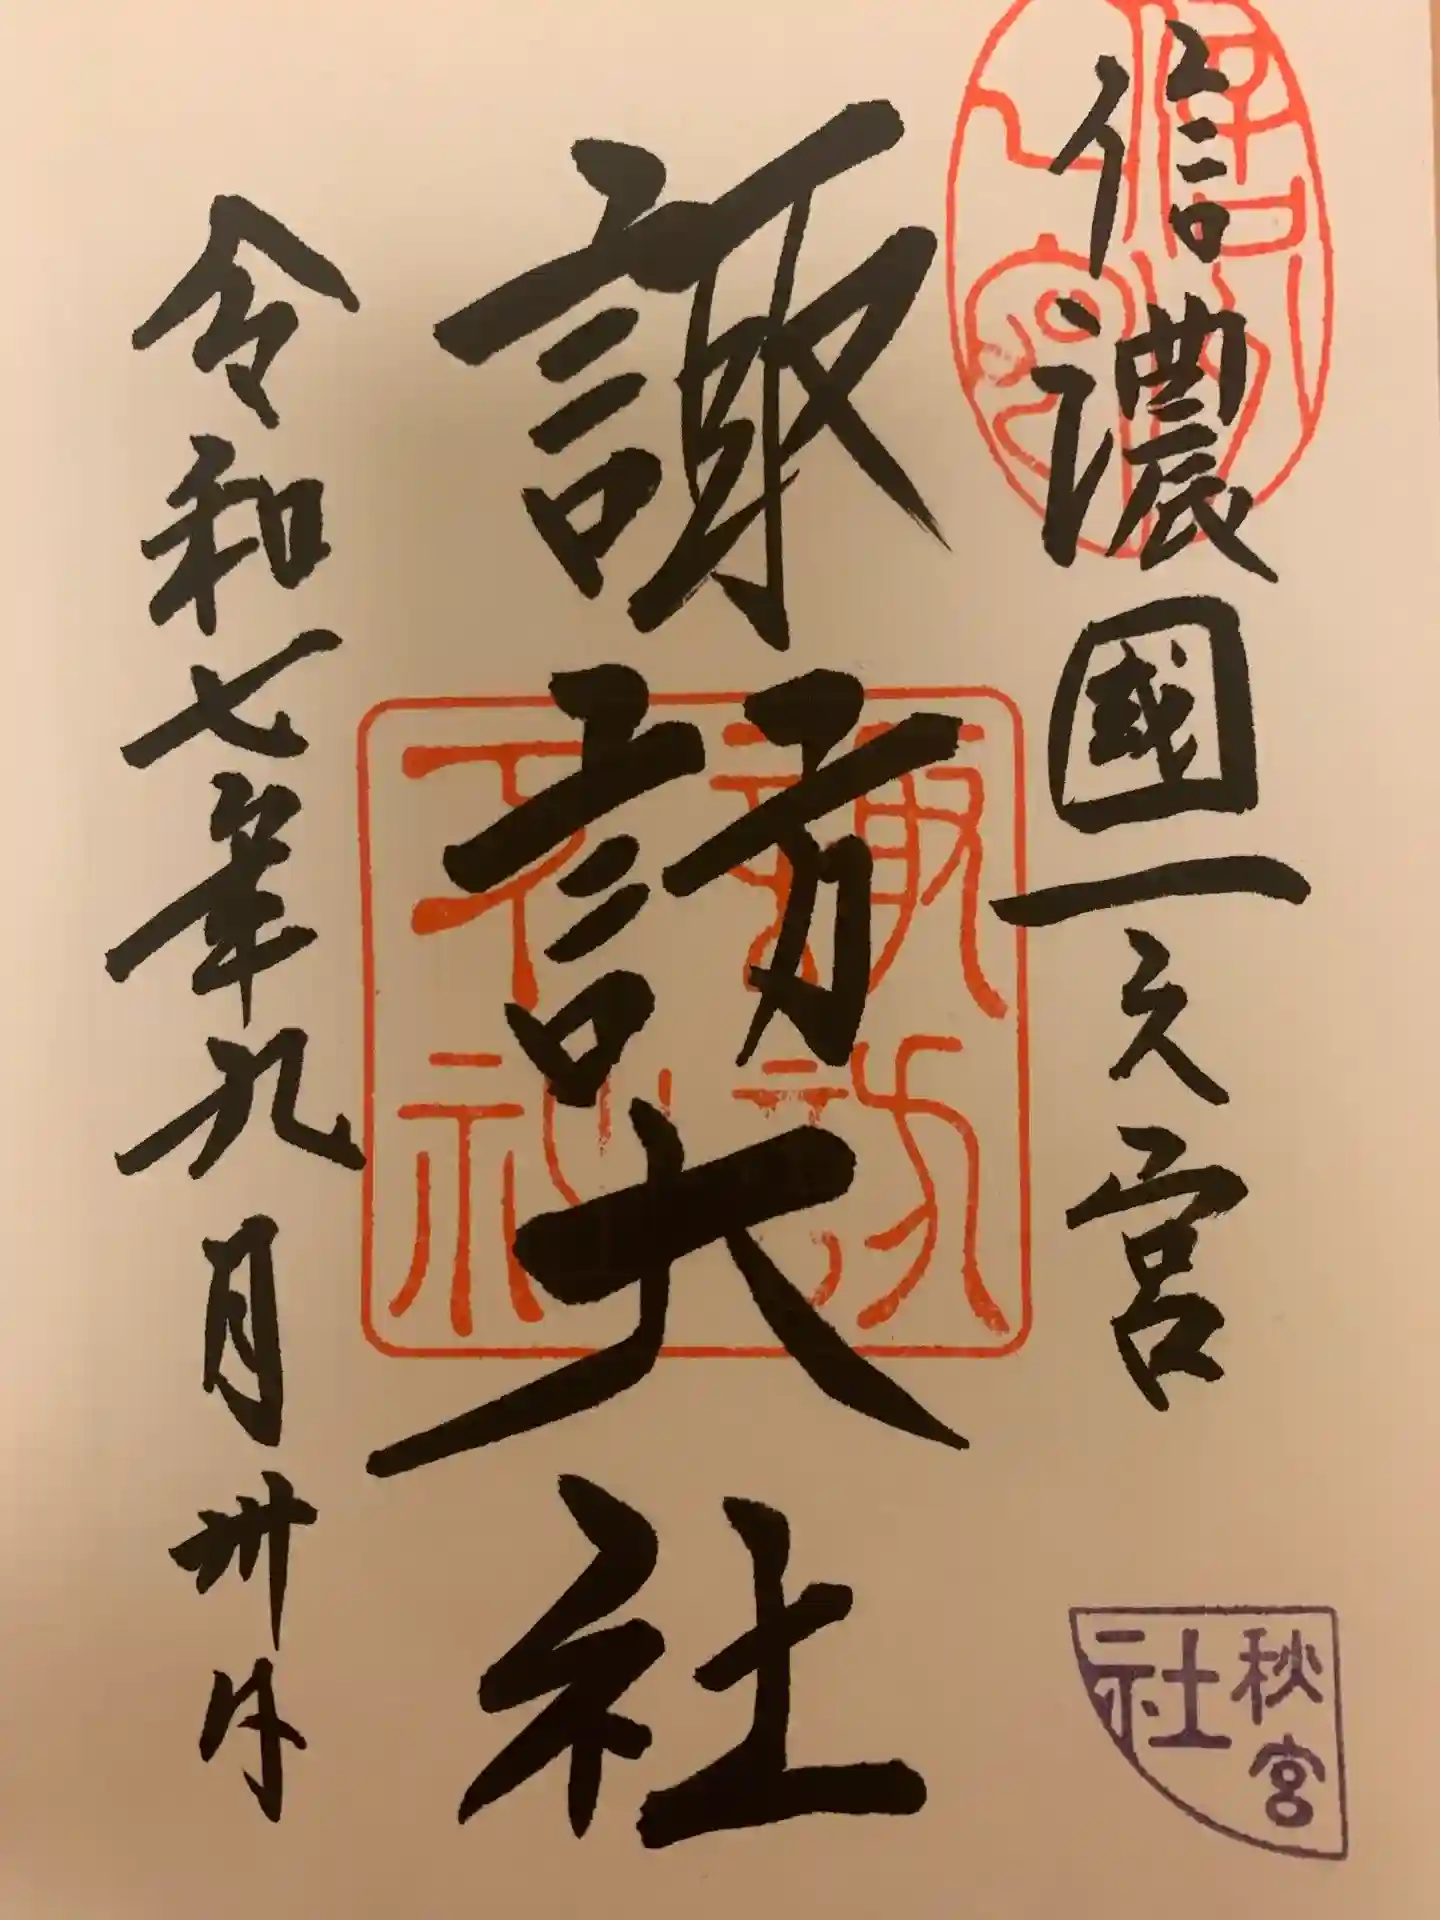 信濃國一之宮
諏訪大社
諏訪
大社
令和七年九月卅日
秋宮
社